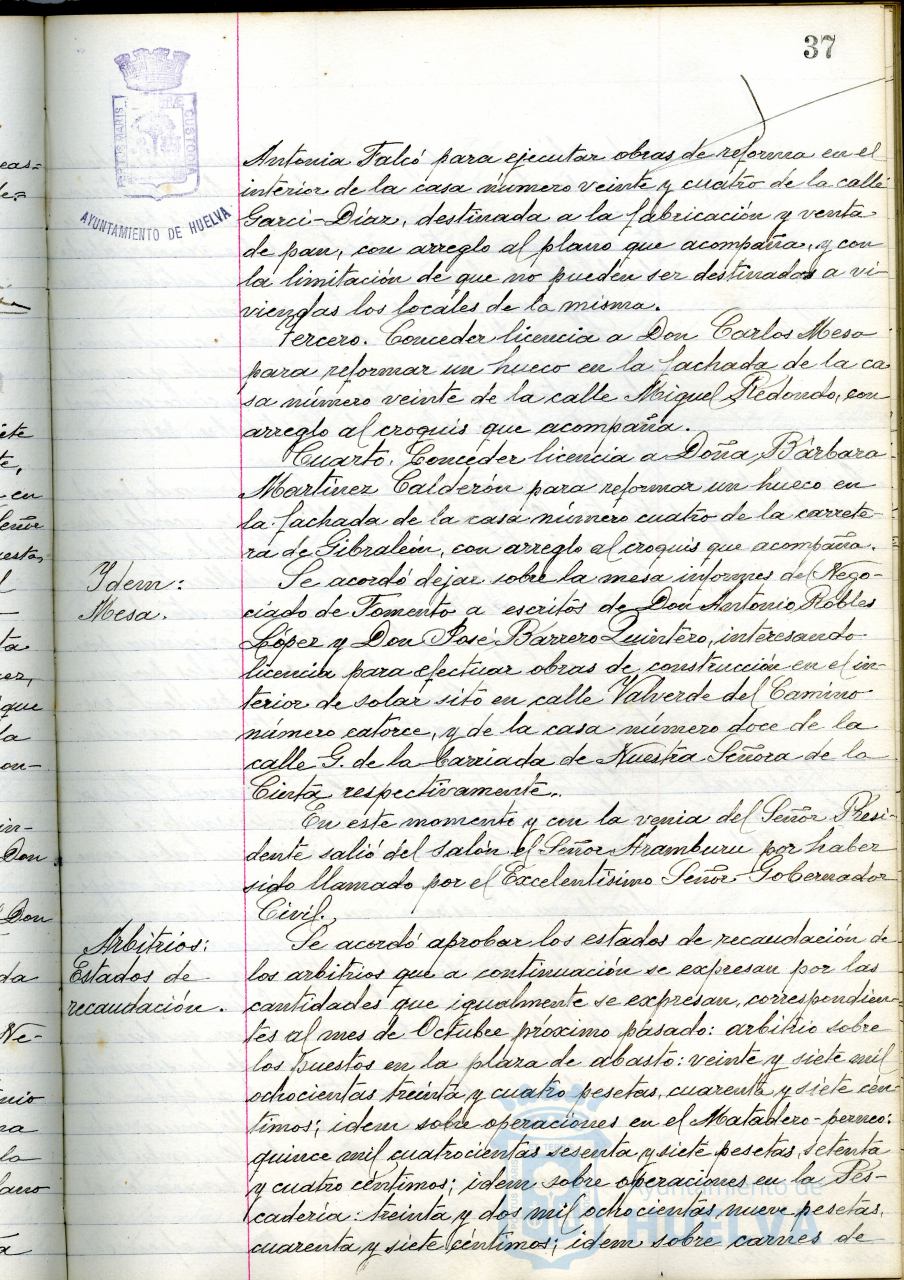 37
PORTUS MARIS ET TERRÆ CUSTODIA
AYUNTAMIENTO DE HUELVA
Antonia Falcó para ejecutar obras de reforma en el
interior de la casa número veinte y cuatro de la calle
Garci-Díaz, destinada a la fabricación y venta
de pan, con arreglo al plano que acompaña, y con
la limitación de que no pueden ser destinados a vi-
viendas los locales de la misma.
Tercero. Conceder licencia a Don Carlos Mesa
para reformar un hueco en la fachada de la ca
sa número veinte de la calle Miguel Redondo, con
arreglo al croquis que acompaña.
Cuarto. Conceder licencia a Doña Bárbara
Martínez Calderón para reformar un hueco en
la fachada de la casa número cuatro de la carrete-
ra de Gibraleón, con arreglo al croquis que acompaña.
Ydem:
Mesa.
Se acordó dejar sobre la mesa informes del Nego-
ciado de Fomento a escritos de Don Antonio Robles
López y Don José Barrero Quintero, interesando
licencia para efectuar obras de construcción en el in-
terior de solar sito en calle Valverde del Camino
número catorce, y de la casa número doce de la
calle G. de la barriada de Nuestra Señora de la
Cinta respectivamente.
En este momento y con la venia del Señor Presi-
dente salió del salón el Señor Aramburu por haber
sido llamado por el Excelentísimo Señor Gobernador
Civil.
Arbitrios:
Estados de
recaudación.
Se acordó aprobar los estados de recaudación de
los arbitrios que a continuación se expresan por las
cantidades que igualmente se expresan, correspondien-
tes al mes de Octubre próximo pasado: arbitrio sobre
los puestos en la plaza de abasto: veinte y siete mil
ochocientas treinta y cuatro pesetas, cuarenta y siete cén
timos; idem sobre operaciones en el Matadero-perneo:
quince mil cuatrocientas sesenta y siete pesetas, setenta
y cuatro céntimos; idem sobre operaciones en la Pes-
cadería: treinta y dos mil ochocientas nueve pesetas,
cuarenta y siete céntimos; idem sobre carnes de
Ayuntamiento de
HUELVA